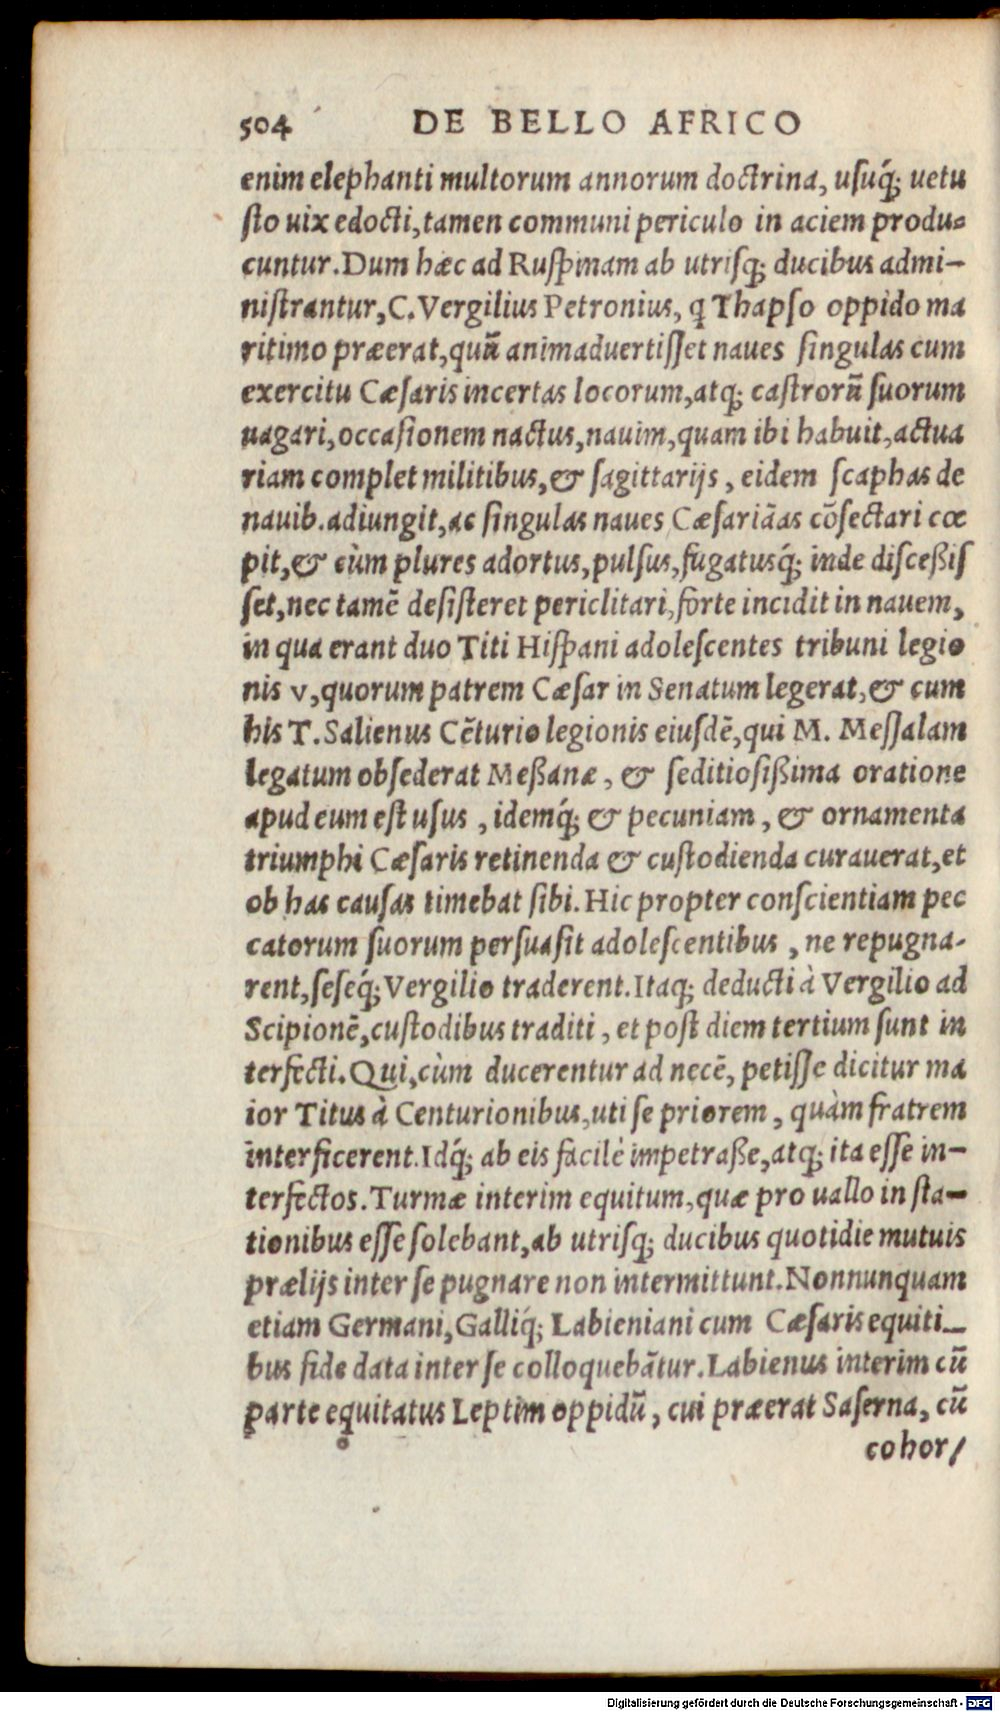 504 DE BELLO AFRICO
enim elephanti multorum annorum doctrina, uſuq́; uetu
ſto uix edocti, tamen communi periculo in aciem produ-
cuntur. Dum hæc ad Ruſpinam ab utriſq; ducibus admi-
niſtrantur, C. Vergilius Petronius, q Thapſo oppido ma
ritimo præerat, quũ animaduertiſſet naues ſingulas cum
exercitu Cæſaris incertas locorum, atq; caſtrorũ ſuorum
uagari, occaſionem nactus, nauim, quam ibi habuit, actua
riam complet militibus, & ſagittarijs, eidem ſcaphas de
nauib. adiungit, ac ſingulas naues Cæſariãas cõſectari cœ
pit, & cùm plures adortus, pulſus, fugatusq́; inde diſceßiſ
ſet, nec tamẽ deſiſteret periclitari, forte incidit in nauem,
in qua erant duo Titi Hiſpani adoleſcentes tribuni legio
nis v, quorum patrem Cæſar in Senatum legerat, & cum
his T. Salienus Cẽturio legionis eiuſdẽ, qui M. Meſſalam
legatum obſederat Meßanæ, & ſeditioſißima oratione
apud eum eſt uſus, idemq́; & pecuniam, & ornamenta
triumphi Cæſaris retinenda & cuſtodienda curauerat, et
ob has cauſas timebat ſibi. Hic propter conſcientiam pec
catorum ſuorum perſuaſit adoleſcentibus, ne repugna-
rent, ſeſeq́; Vergilio traderent. Itaq; deducti à Vergilio ad
Scipionẽ, cuſtodibus traditi, et poſt diem tertium ſunt in
terfecti. Qui, cùm ducerentur ad necẽ, petiſſe dicitur ma
ior Titus à Centurionibus, uti ſe priorem, quàm fratrem
interficerent. Idq́; ab eis facilè impetraße, atq; ita eſſe in-
terfectos. Turmæ interim equitum, quæ pro uallo in ſta-
tionibus eſſe ſolebant, ab utriſq; ducibus quotidie mutuis
prælijs inter ſe pugnare non intermittunt. Nonnunquam
etiam Germani, Galliq́; Labieniani cum Cæſaris equiti-
bus fide data inter ſe colloquebãtur. Labienus interim cũ
parte equitatus Leptim oppidũ, cui præerat Saſerna, cũ
cohor/
Digitalisierung gefördert durch die Deutsche Forschungsgemeinschaft - DFG